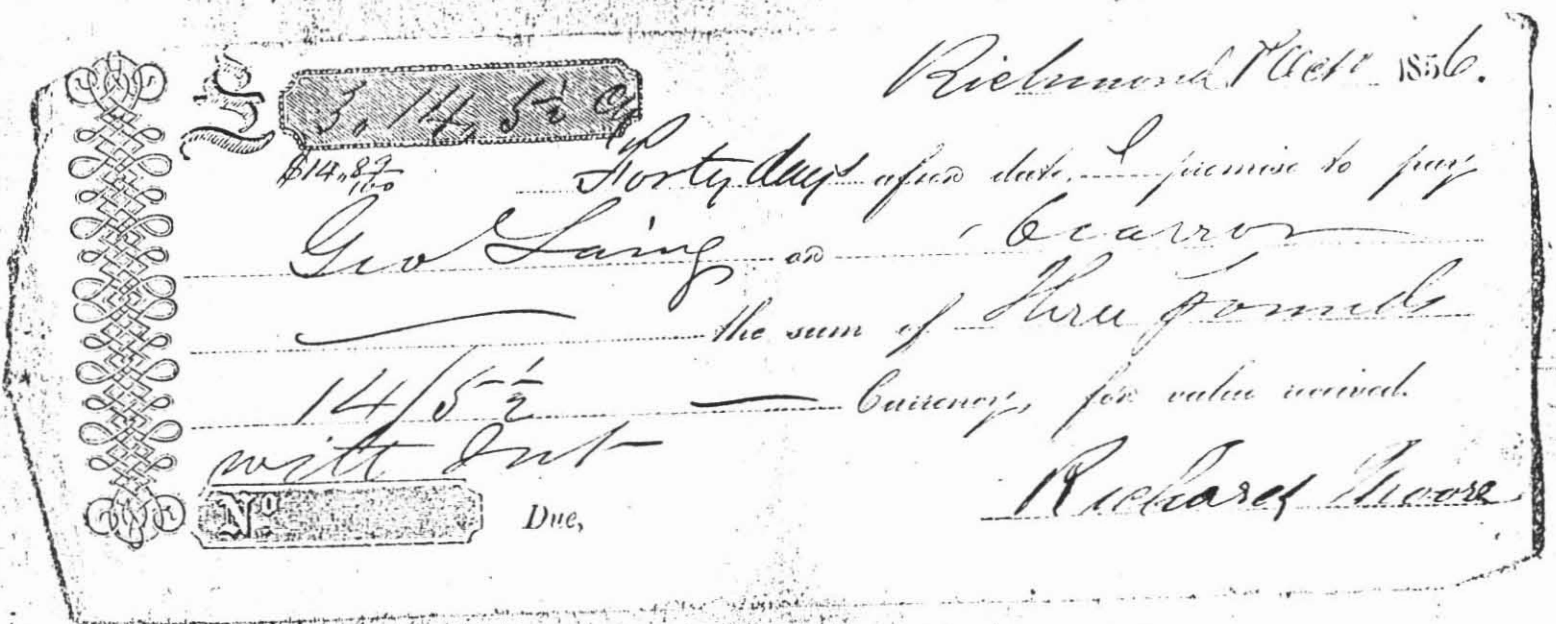 Richmond 1856.
£ 3, 14, 5½ Cy
$14.89/100 Forty days after date, I promise to pay
Geo Laing or bearer
the sum of Three Pounds
14/5½ Currency, for value received.
with Int
No Due, Richard Moore